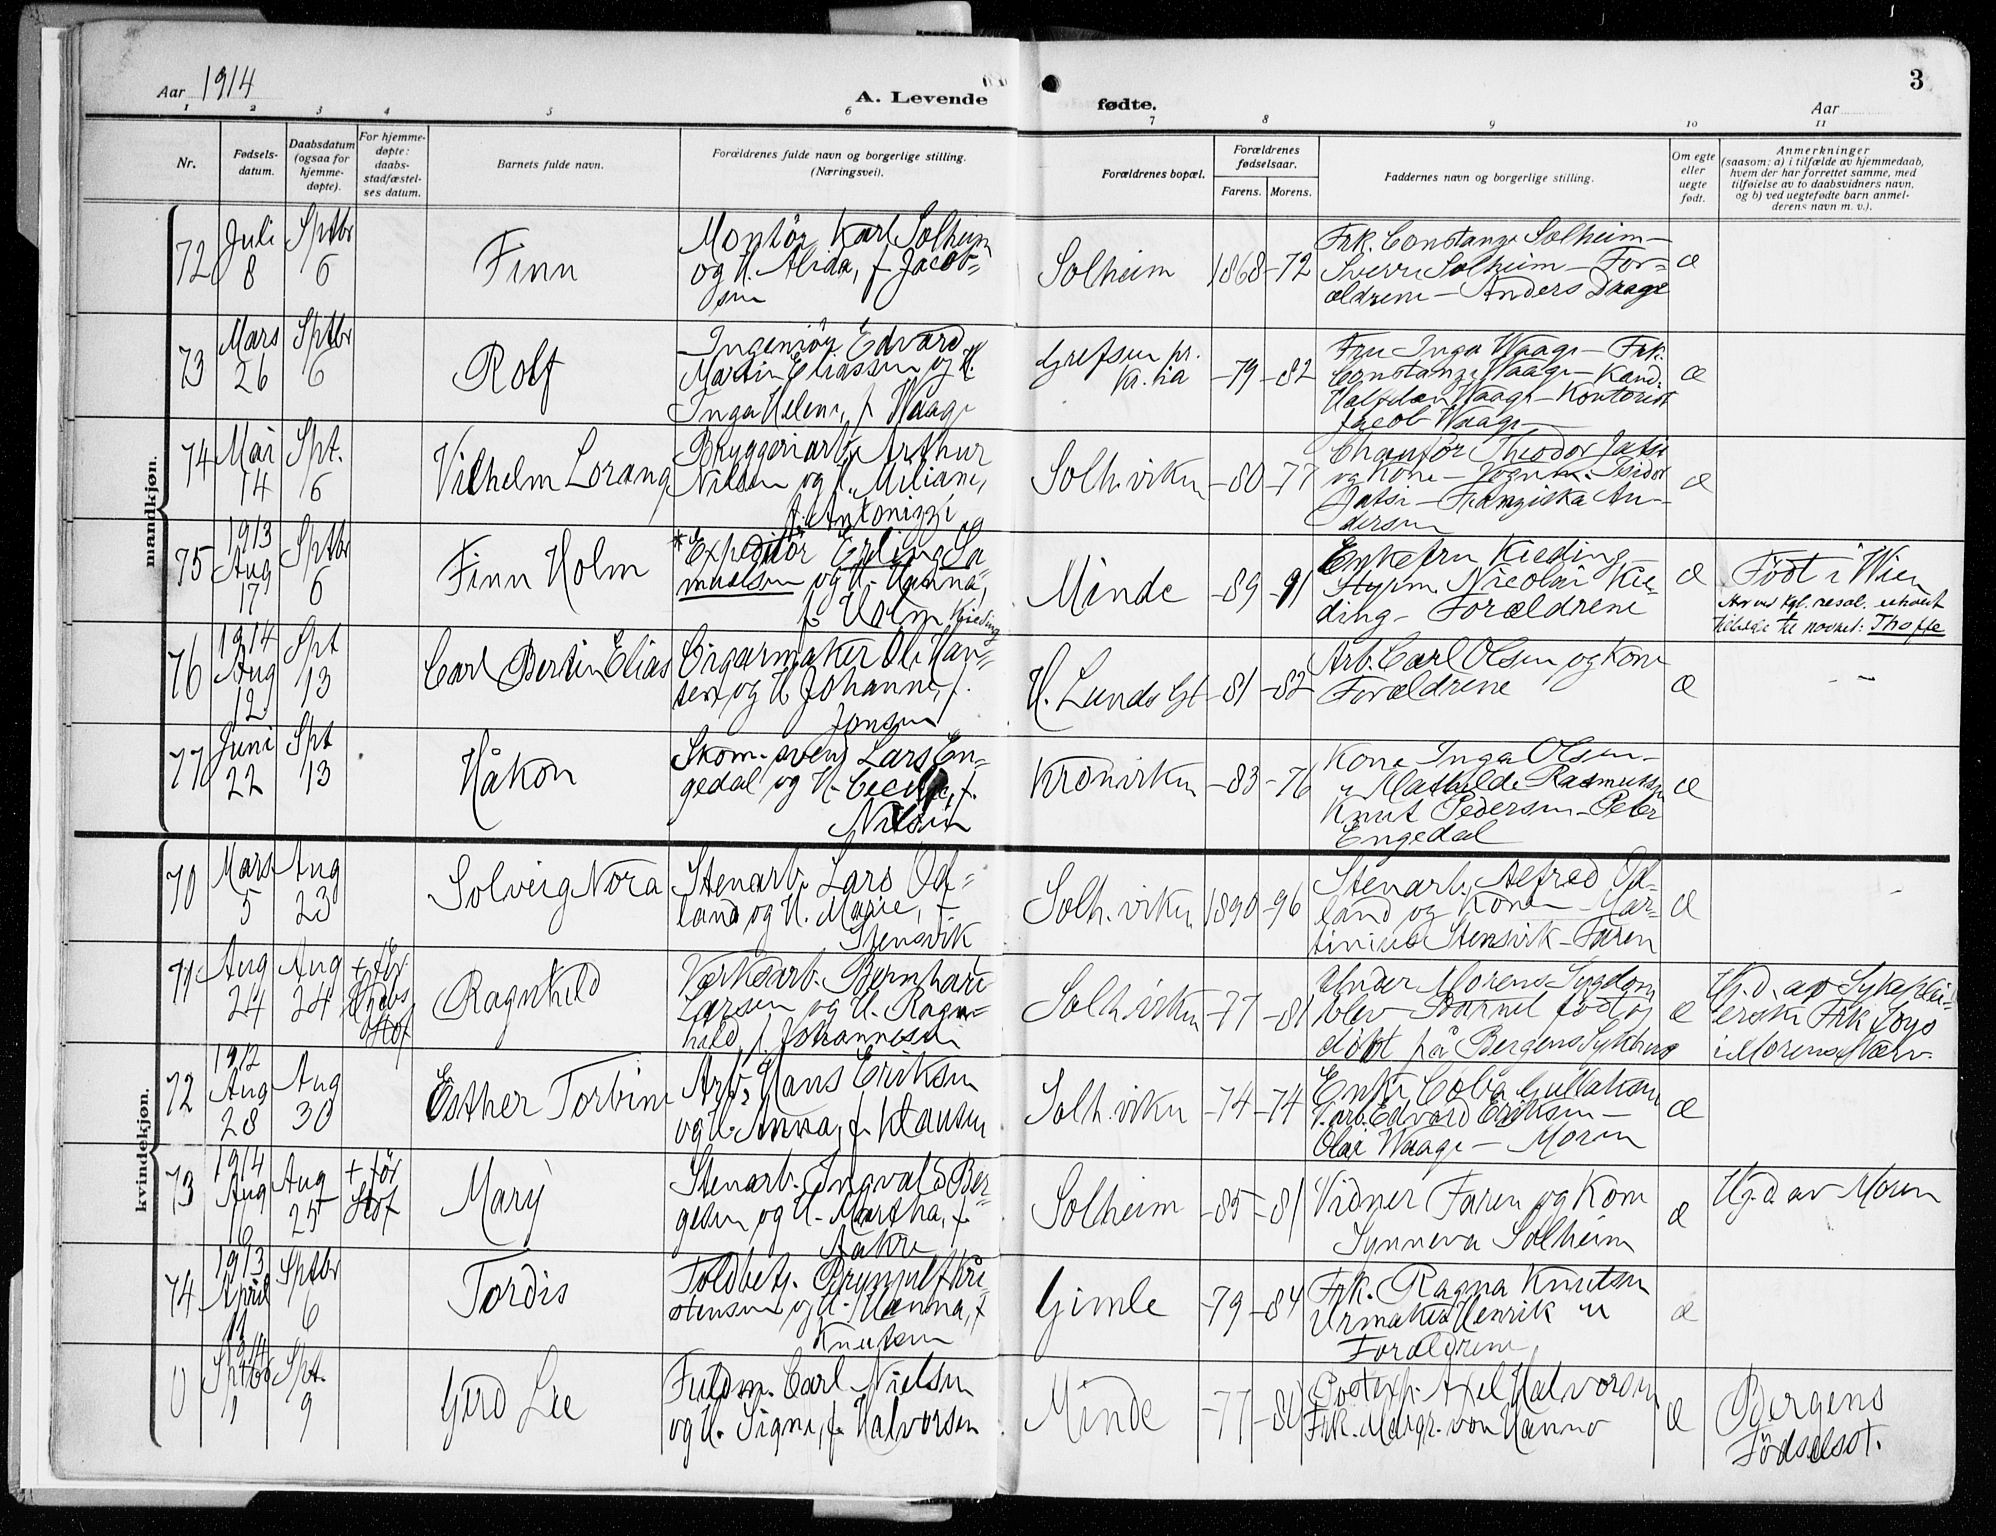 Aar 1914
A. Levende
fødte.
Aar
3
1 2 3 4 5 6 7 8 9 10 11
Nr.
Fødsels-
datum.
Daabsdatum
(ogsaa for
hjemme-
døpte).
For hjemme-
døpte:
daabs-
stadfæstel-
ses datum.
Barnets fulde navn.
Forældrenes fulde navn og borgerlige stilling.
(Næringsvei).
Forældrenes bopæl.
Forældrenes
fødselsaar.
Farens. Morens.
Faddernes navn og borgerlige stilling.
Om egte
eller
uegte
født.
Anmerkninger
(saasom: a) i tilfælde av hjemmedaab,
hvem der har forrettet samme, med
tilføielse av to daabsvidners navn,
og b) ved uegtefødte barn anmel-
derens navn m. v.).
mandkjøn.
72
Juli
8
Sptbr
6
Finn
Montör Karl Solheim
og H. Alida, f. Jacob=
sen
Solheim
1868 -72
Frk. Constanze Solheim -
Sverre Solheim - For=
ældrene - Anders Draage
æ
73
Mars
26
Sptbr
6
Rolf
Ingeniör Edvard
Martin Eliassen og H.
Inga Helene, f. Waage
Grefsen pr.
Kr.ia
-79 -82
Fru Inga Waage - Frk.
Constanze Waage - Kand.
Halfdan Waage - Kontorist
Jacob Waage
æ
74
Mai
14
Spt.
6
Vilhelm Lorang
Bryggeriarb. Arthur
Nilsen og H. Miliane,
f. Antonizzi
Solh.viken
-80 -77
Chauför Theodor Jatse
og Kone - Vognm. Isidor
Jatse - Franziska An-
dersen
æ
75
1913
Aug
17
Sptbr
6
Finn Holm
*Expeditör Erling Sa
muelsen og H. Hanna,
f. Holm Kieding
Minde
-89 -91
Enkefru Kieding -
Styrm. Nicolai Kie-
ding - Forældrene
æ
Födt i Wien
Har ved kgl. resol. erhvervet
tilladelse til navnet: Thoffe
76
1914
Aug
12
Spt
13
Carl Bertin Elias
Cigarmaker Ole Han=
sen og H Johanne, f.
Jonsen
H. Lunds Gt
-81 -82
Arb. Carl Olsen og Kone
Forældrene
æ
- -
77
Juni
22
Spt
13
Håkon
Skom. svend Lars En=
gedal og H. Cecilie, f.
Nilsen
Kronviken
-83 -76
Kone Inga Olsen -
" Mathilde Rasmussen
Knut Pedersen - Peter
Engedal
æ
kvindekjøn.
70
Mars
5
Aug
23
Solveig Nora
Stenarb. Lars Od=
land og H. Marie, f.
Stensvik
Solh.viken
1890 -96
Stenarb. Alfred Od-
land og Kone - Mar-
tinius Stensvik - Faren
æ
71
Aug
24
Aug
24
+ för
Dåbs
stof
Ragnhild
Verksarb. Bernhard
Larsen og H. Ragn=
hild, f. Johannesen
Solh.viken
-77 -81
Under Morens Sygdom
blev Barnet födt og
döbt på Bergens Sykehus
æ
Hj.d. av Sykeplei-
erske Frk. Joys
i Morens Nærv.
72
1912
Aug
28
Aug
30
Esther Torbine
Arb. Hans Eriksen
og H. Anna, f. Klausen
Solh.viken
-74 -74
Enke Coba Gullaksen
F.arb. Edvard Eriksen -
Olai Waage - Moren
æ
73
1914
Aug
6
Aug
25
+ för
Stof
Mary
Stenarb. Ingvald Ber=
gesen og H. Martha, f.
Aakre
Solheim
-85 -81
Vidner Faren og Kone
Synneva Solheim
æ
Hj.d. av Moren
74
1913
April
11
Sptbr
6
Tordis
Toldbetj. Brynjulf Kri=
stensen og H. Hanna, f
Knutsen
Gimle
-79 -84
Frk. Ragna Knutsen
Urmaker Henrik "
Forældrene
æ
0
1914
Sptbr
9
Spt.
9
Gerd Lie
Fuldm. Carl Nielsen
og H. Signe, f. Halvorsen
Minde
-77 -80
Postexp. Axel Halvorsen
Frk. Margr. von Hanno
æ
Bergens
Födselsst.